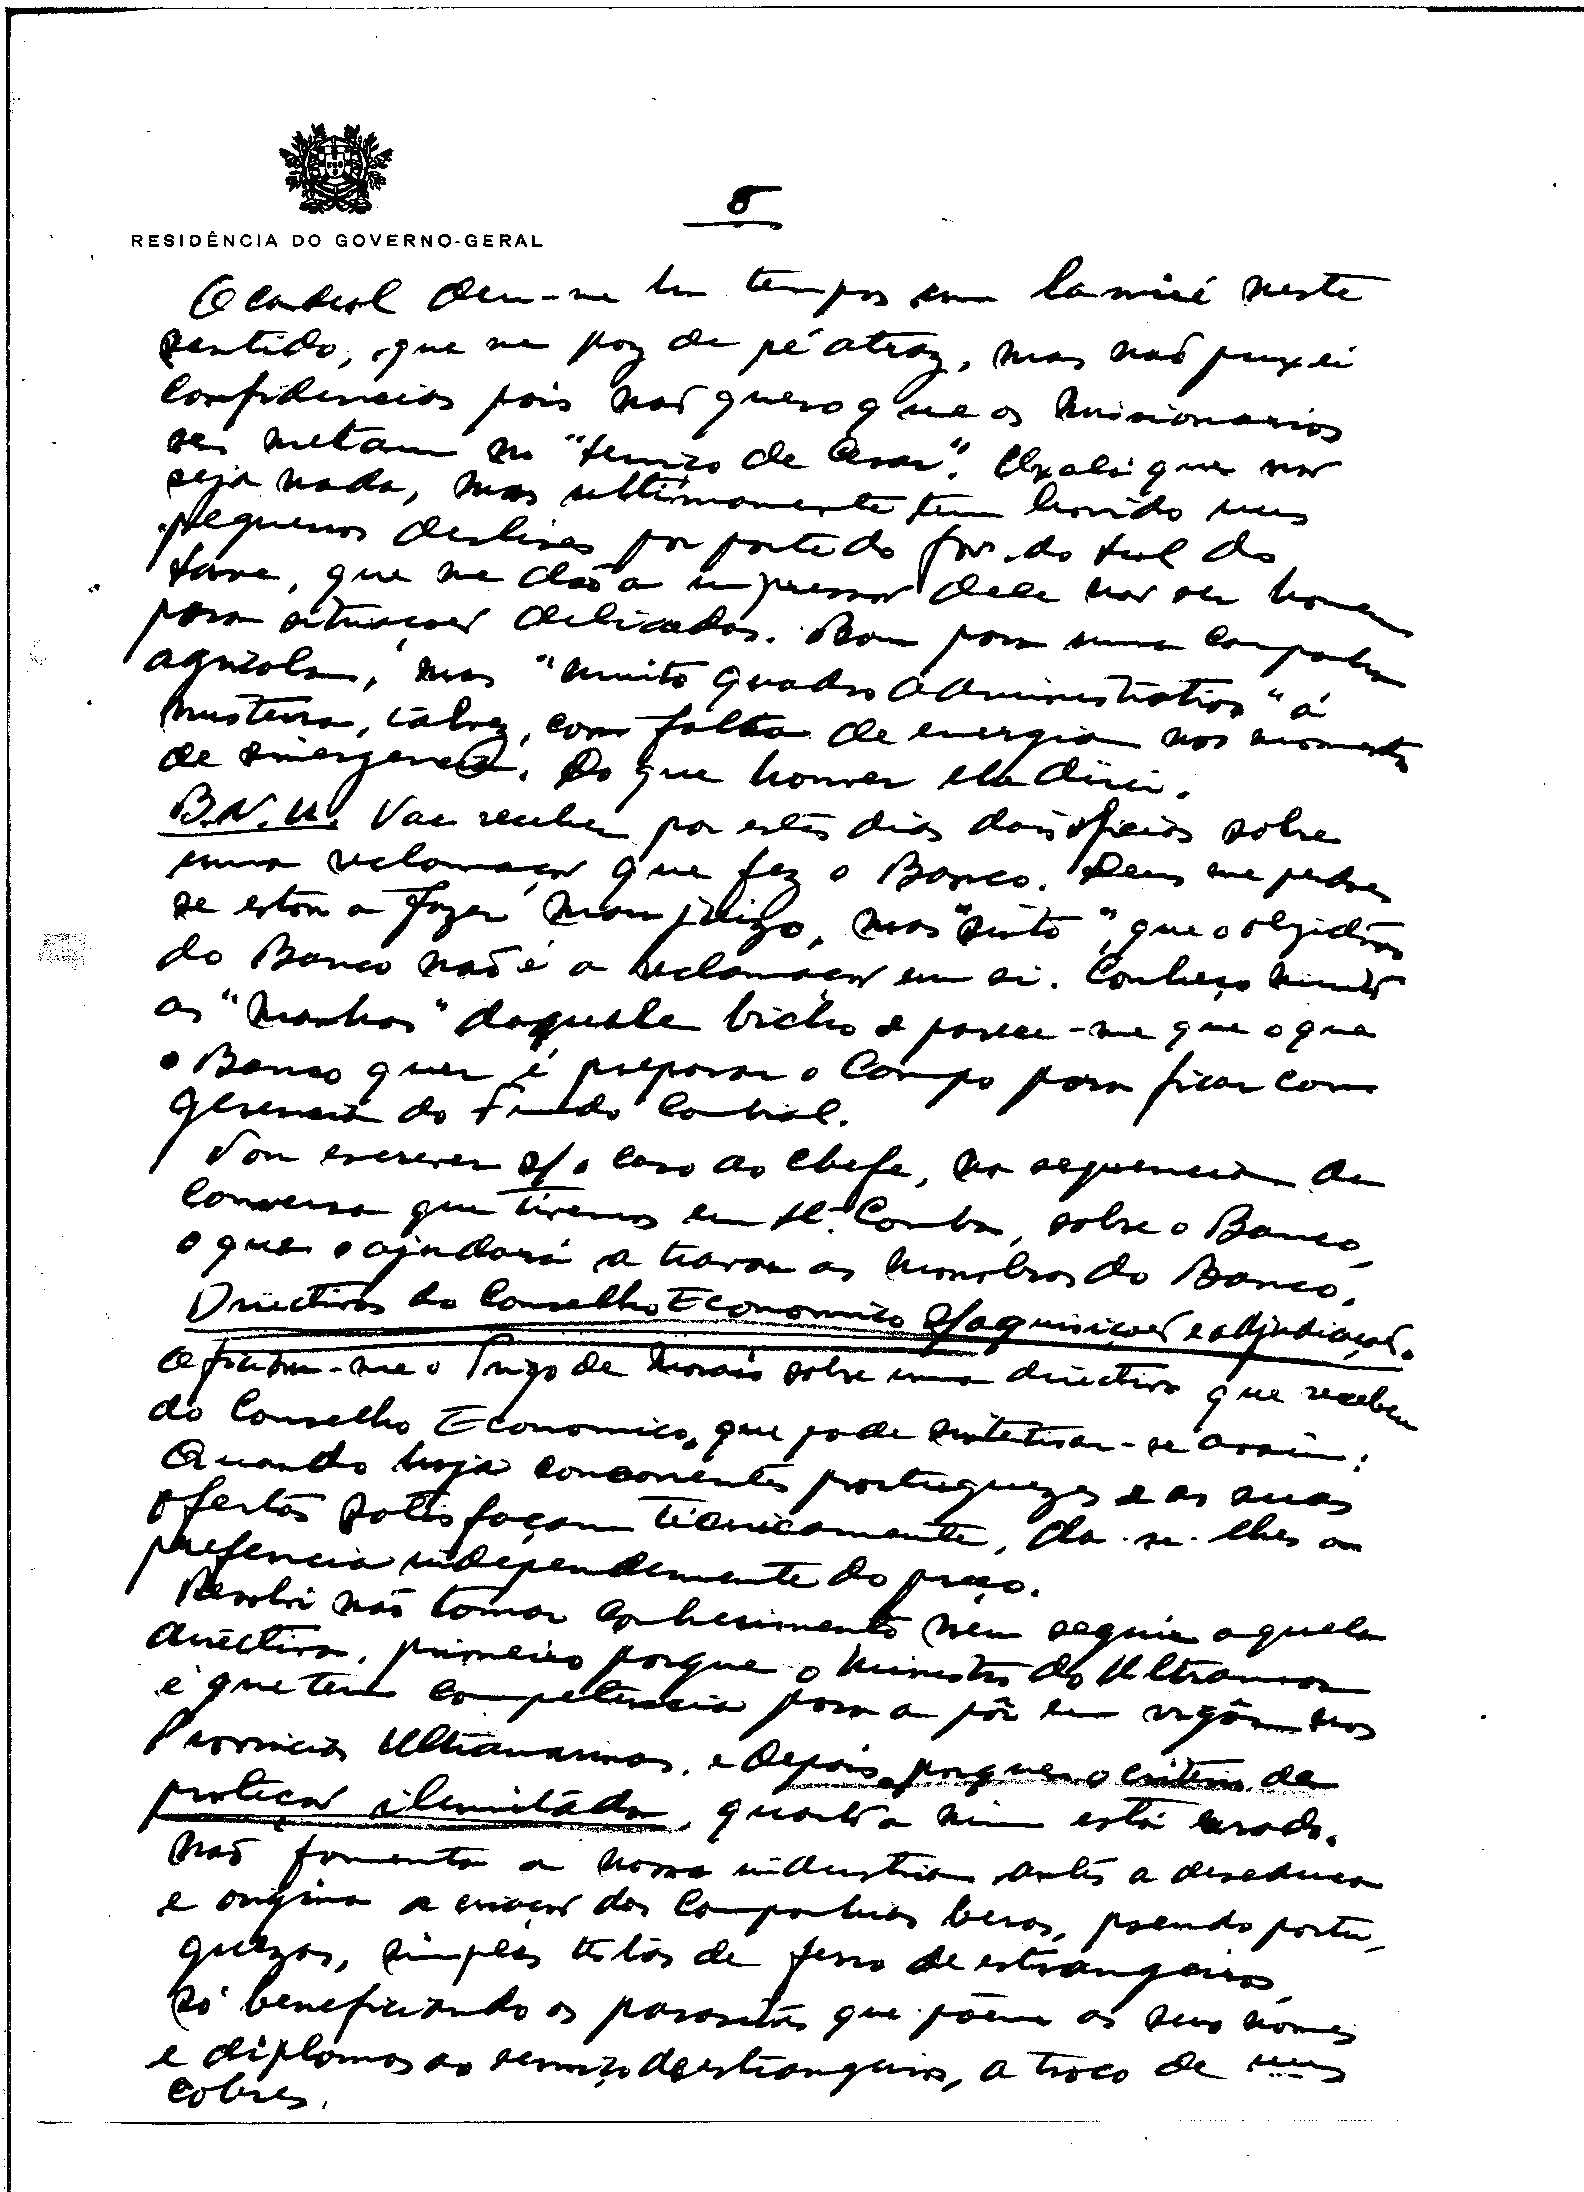 RESIDÊNCIA DO GOVERNO-GERAL
8
O Cardeal deu-me há tempos um lamiré neste
sentido, que me poz de pé atraz, mas não puxei
confidencias pois não quero que os missionarios
se metam no "terreiro de Cesar". Oxalá que não
seja nada, mas ultimamente tem havido uns
pequenos deslises por parte do Gov. do Sul do
Save, que me dão a impressão dele não ser homem
para situações delicadas. Bom para uma campanha
agricola, mas "muito quadro administrativo" á
mistura, talvez, com falta de energia nos momentos
de emergencia. Do que houver eu direi.
B.N.U. Vae receber por estes dias dois oficios sobre
uma reclamação que fez o Banco. Deus me perdoe
se estou a fazer mau juizo, mas "sinto", que o objectivo
do Banco não é a reclamação em si. Conheço muito
as "manhas" daquele bicho e parece-me que o que
o Banco quer é preparar o Campo para ficar com a
gerencia do Fundo Cambial.
Vou escrever s/ o caso ao Chefe, na sequencia da
conversa que tivemos em Sta. Comba, sobre o Banco,
o que o ajudará a travar as manobras do Banco.
Directivas do Conselho Economico s/ aquisições e adjudicações.
Oficiou-me o Trigo de Morais sobre uma directiva que recebeu
do Conselho Economico, que pode sintetisar-se assim:
Quando haja concorrentes portuguezes e as suas
ofertas satisfaçam técnicamente, da-se-lhes a
prefencia independemente do preço.
Resolvi não tomar conhecimento nem seguir aquela
directiva, primeiro porque o Ministro do Ultramar
é que tem competencia para a pôr em vigôr nas
Provincias Ultramarinas, e depois porque o criterio de
proteção ilimitada, quanto a mim está errado.
Não fomenta a nossa industria antes a deseduca
e origina a criação das Companhias beras, pseudo portu-
guezas, simples testas de ferro de estrangeiros,
só beneficiando os parasitas que põem os seus nomes
e diplomas ao serviço de estrangeiros, a troco de uns
cobres.